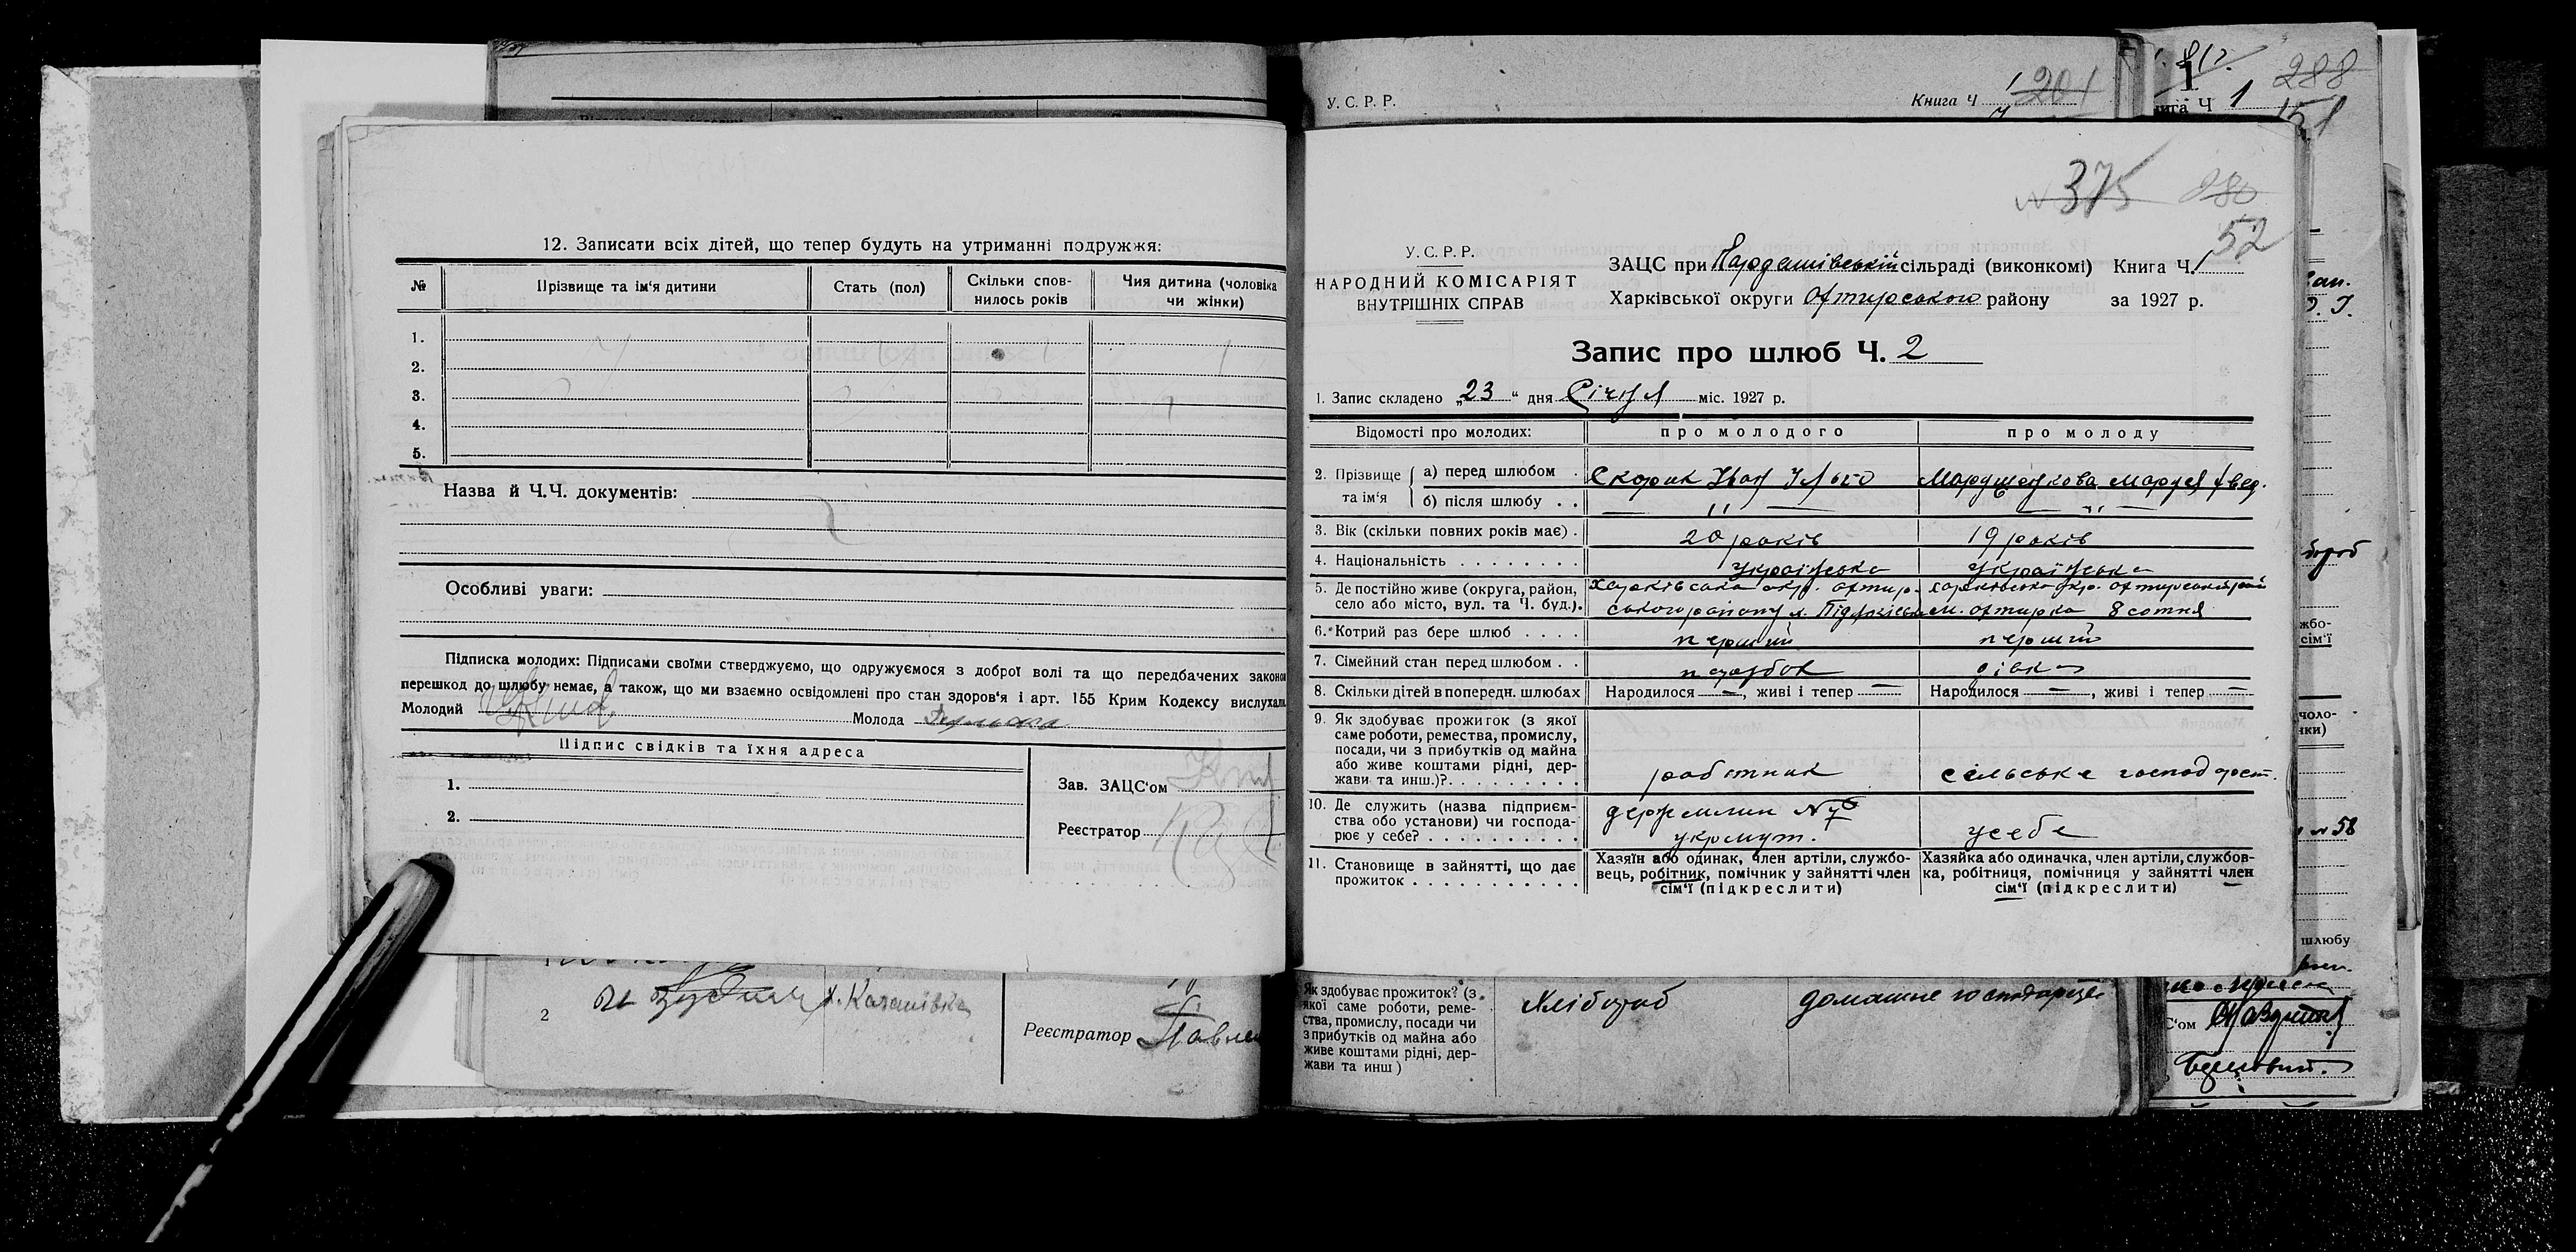 12. Записати всіх дітей, що тепер будуть на утриманні подружжя:
№ Прізвище та ім'я дитини Стать (пол) Скільки спов-нилось років Чия дитина (чоловіка чи жінки)
1.
2.
3.
4.
5.
Назва й Ч.Ч. документів:
Особливі уваги:
Підписка молодих: Підписами своїми стверджуємо, що одружуємося з доброї волі та що передбачених законом
перешкод до шлюбу немає, а також, що ми взаємно освідомлені про стан здоров'я і арт. 155 Крим Кодексу вислухали
Молодий Молода
Підпис свідків та їхня адреса
1.
2.
Зав. ЗАЦС'ом
Реєстратор
2 х. Качанівка
Реєстратор
У. С. Р. Р. Книга Ч 201
288
Книга Ч 1
151
№ 375 280
52
У. С. Р. Р.
НАРОДНИЙ КОМІСАРІЯТ
ВНУТРІШНІХ СПРАВ
ЗАЦС при сільраді (виконкомі) Книга Ч. 1
Харківської округи Охтирського району за 1927 р.
Запис про шлюб Ч. 2
1. Запис складено „23" дня Січня міс. 1927 р.
Відомості про молодих: про молодого про молоду
2. Прізвище та ім'я а) перед шлюбом Скорик Іван Маруся
б) після шлюбу — „ — — „ —
3. Вік (скільки повних років має) 20 років 19 років
4. Національність українська українська
5. Де постійно живе (округа, район, Харківська окр. Охтир- Харківська окр. Охтирський рай
село або місто, вул. та Ч. буд.). ського району х. м. Охтирка 8 сотня
6. Котрий раз бере шлюб перший перший
7. Сімейний стан перед шлюбом парубок дівка
8. Скільки дітей в попередн. шлюбах Народилося —, живі і тепер — Народилося —, живі і тепер —
9. Як здобуває прожиток (з якої
саме роботи, ремества, промислу,
посади, чи з прибутків од майна
або живе коштами рідні, дер-
жави та инш.)? робітник сільське господарст.
10. Де служить (назва підприєм-
ства або установи) чи господа-
рює у себе? держмлин № укрмут. у себе
11. Становище в зайнятті, що дає
прожиток
Хазяїн або одинак, член артіли, службо-
вець, робітник, помічник у зайнятті член
сім'ї (підкреслити)
Хазяйка або одиначка, член артіли, службов-
ка, робітниця, помічниця у зайнятті член
сім'ї (підкреслити)
Як здобуває прожиток? (з
якої саме роботи, реме-
ства, промислу, посади чи
з прибутків од майна або
живе коштами рідні, дер-
жави та инш)
Хлібороб домашнє господарство
№ 58
шлюбу